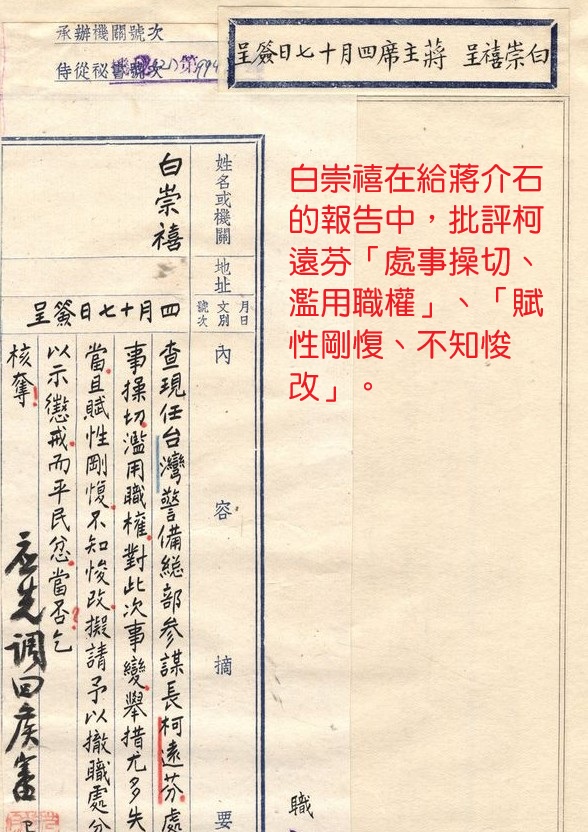 承辦機關號次
侍從祕書號次
白崇禧呈 蔣主席四月十七日簽呈
白崇禧在給蔣介石
的報告中，批評柯
遠芬「處事操切、
濫用職權」、「賦
性剛愎、不知悛
改」。
姓名或機關
白崇禧
地址
月日
文別
號次
四月十七日簽呈
內容摘要
查現任台灣警備總部參謀長柯遠芬處
事操切濫用職權對此次事變舉措尤多失
當且賦性剛愎不知悛改擬請予以撤職處分
以示懲戒而平民忿當否乞
核奪
應先調回候審
職